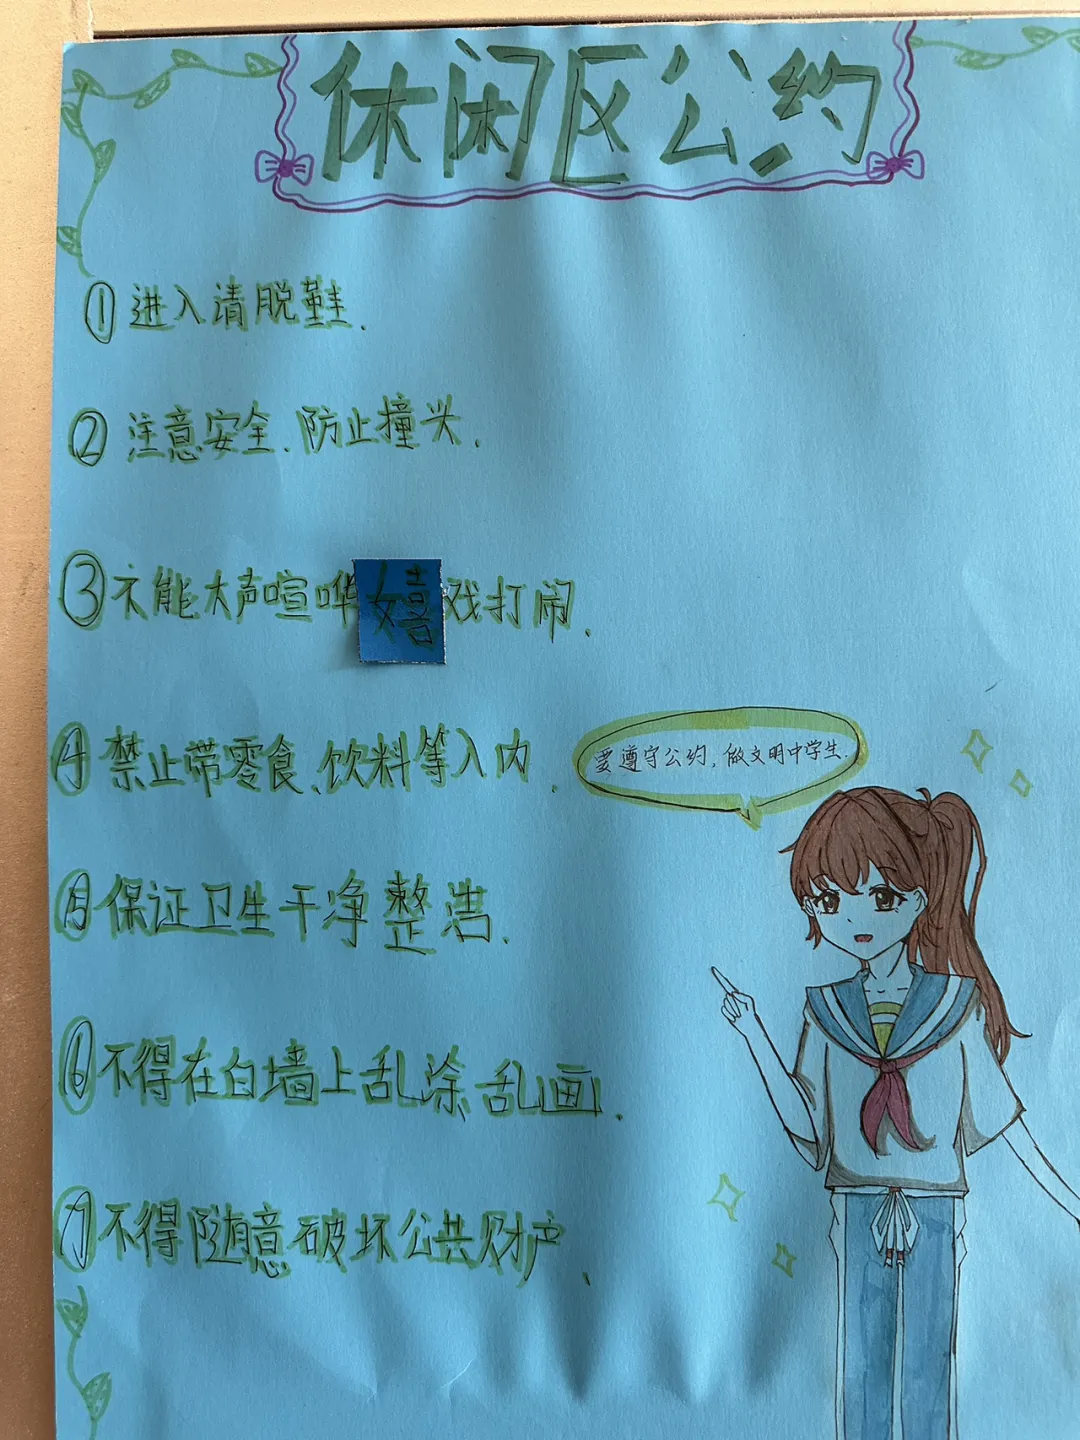 休闲区公约
①进入请脱鞋.
②注意安全.防止撞头.
③不能大声喧哗嬉戏打闹.
④禁止带零食、饮料等入内.
要遵守公约,做文明中学生.
⑤保证卫生干净整洁.
⑥不得在白墙上乱涂乱画.
⑦不得随意破坏公共财产.